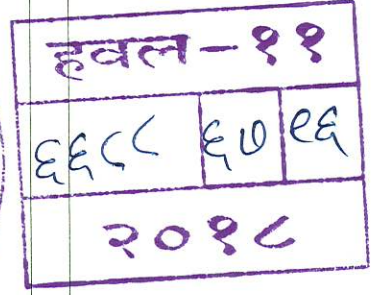 हवल-११
६६८८ ६७ ९६
२०१८